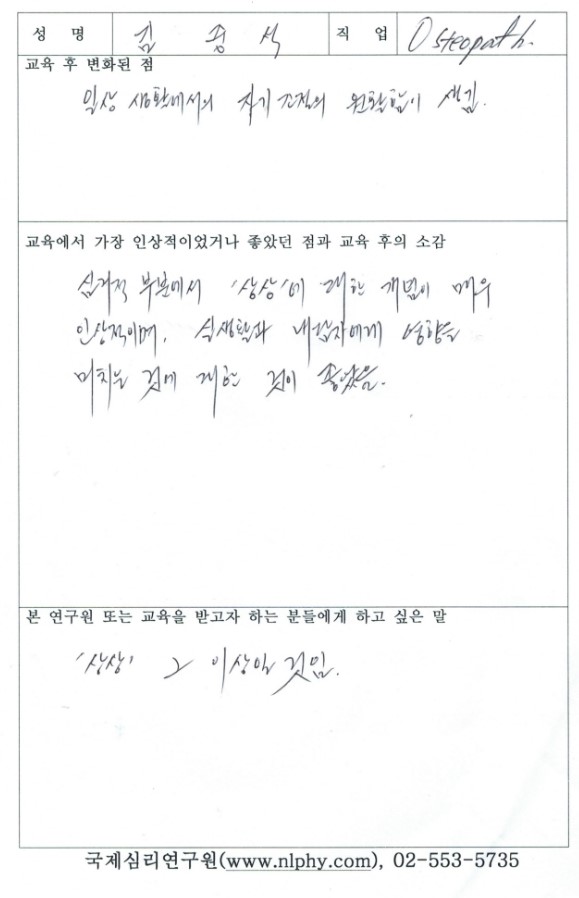 성 명 김 종 석 직 업 Osteopath.
교육 후 변화된 점
일상 생활에서의 자기 조절의 원활함이 생김.
교육에서 가장 인상적이었거나 좋았던 점과 교육 후의 소감
심리적 부분에서 '상상'에 대한 개념이 매우
인상적이며, 실생활과 내담자에게 영향을
미치는 것에 대한 것이 좋았음.
본 연구원 또는 교육을 받고자 하는 분들에게 하고 싶은 말
'상상' 그 이상일 것임.
국제심리연구원(www.nlphy.com), 02-553-5735